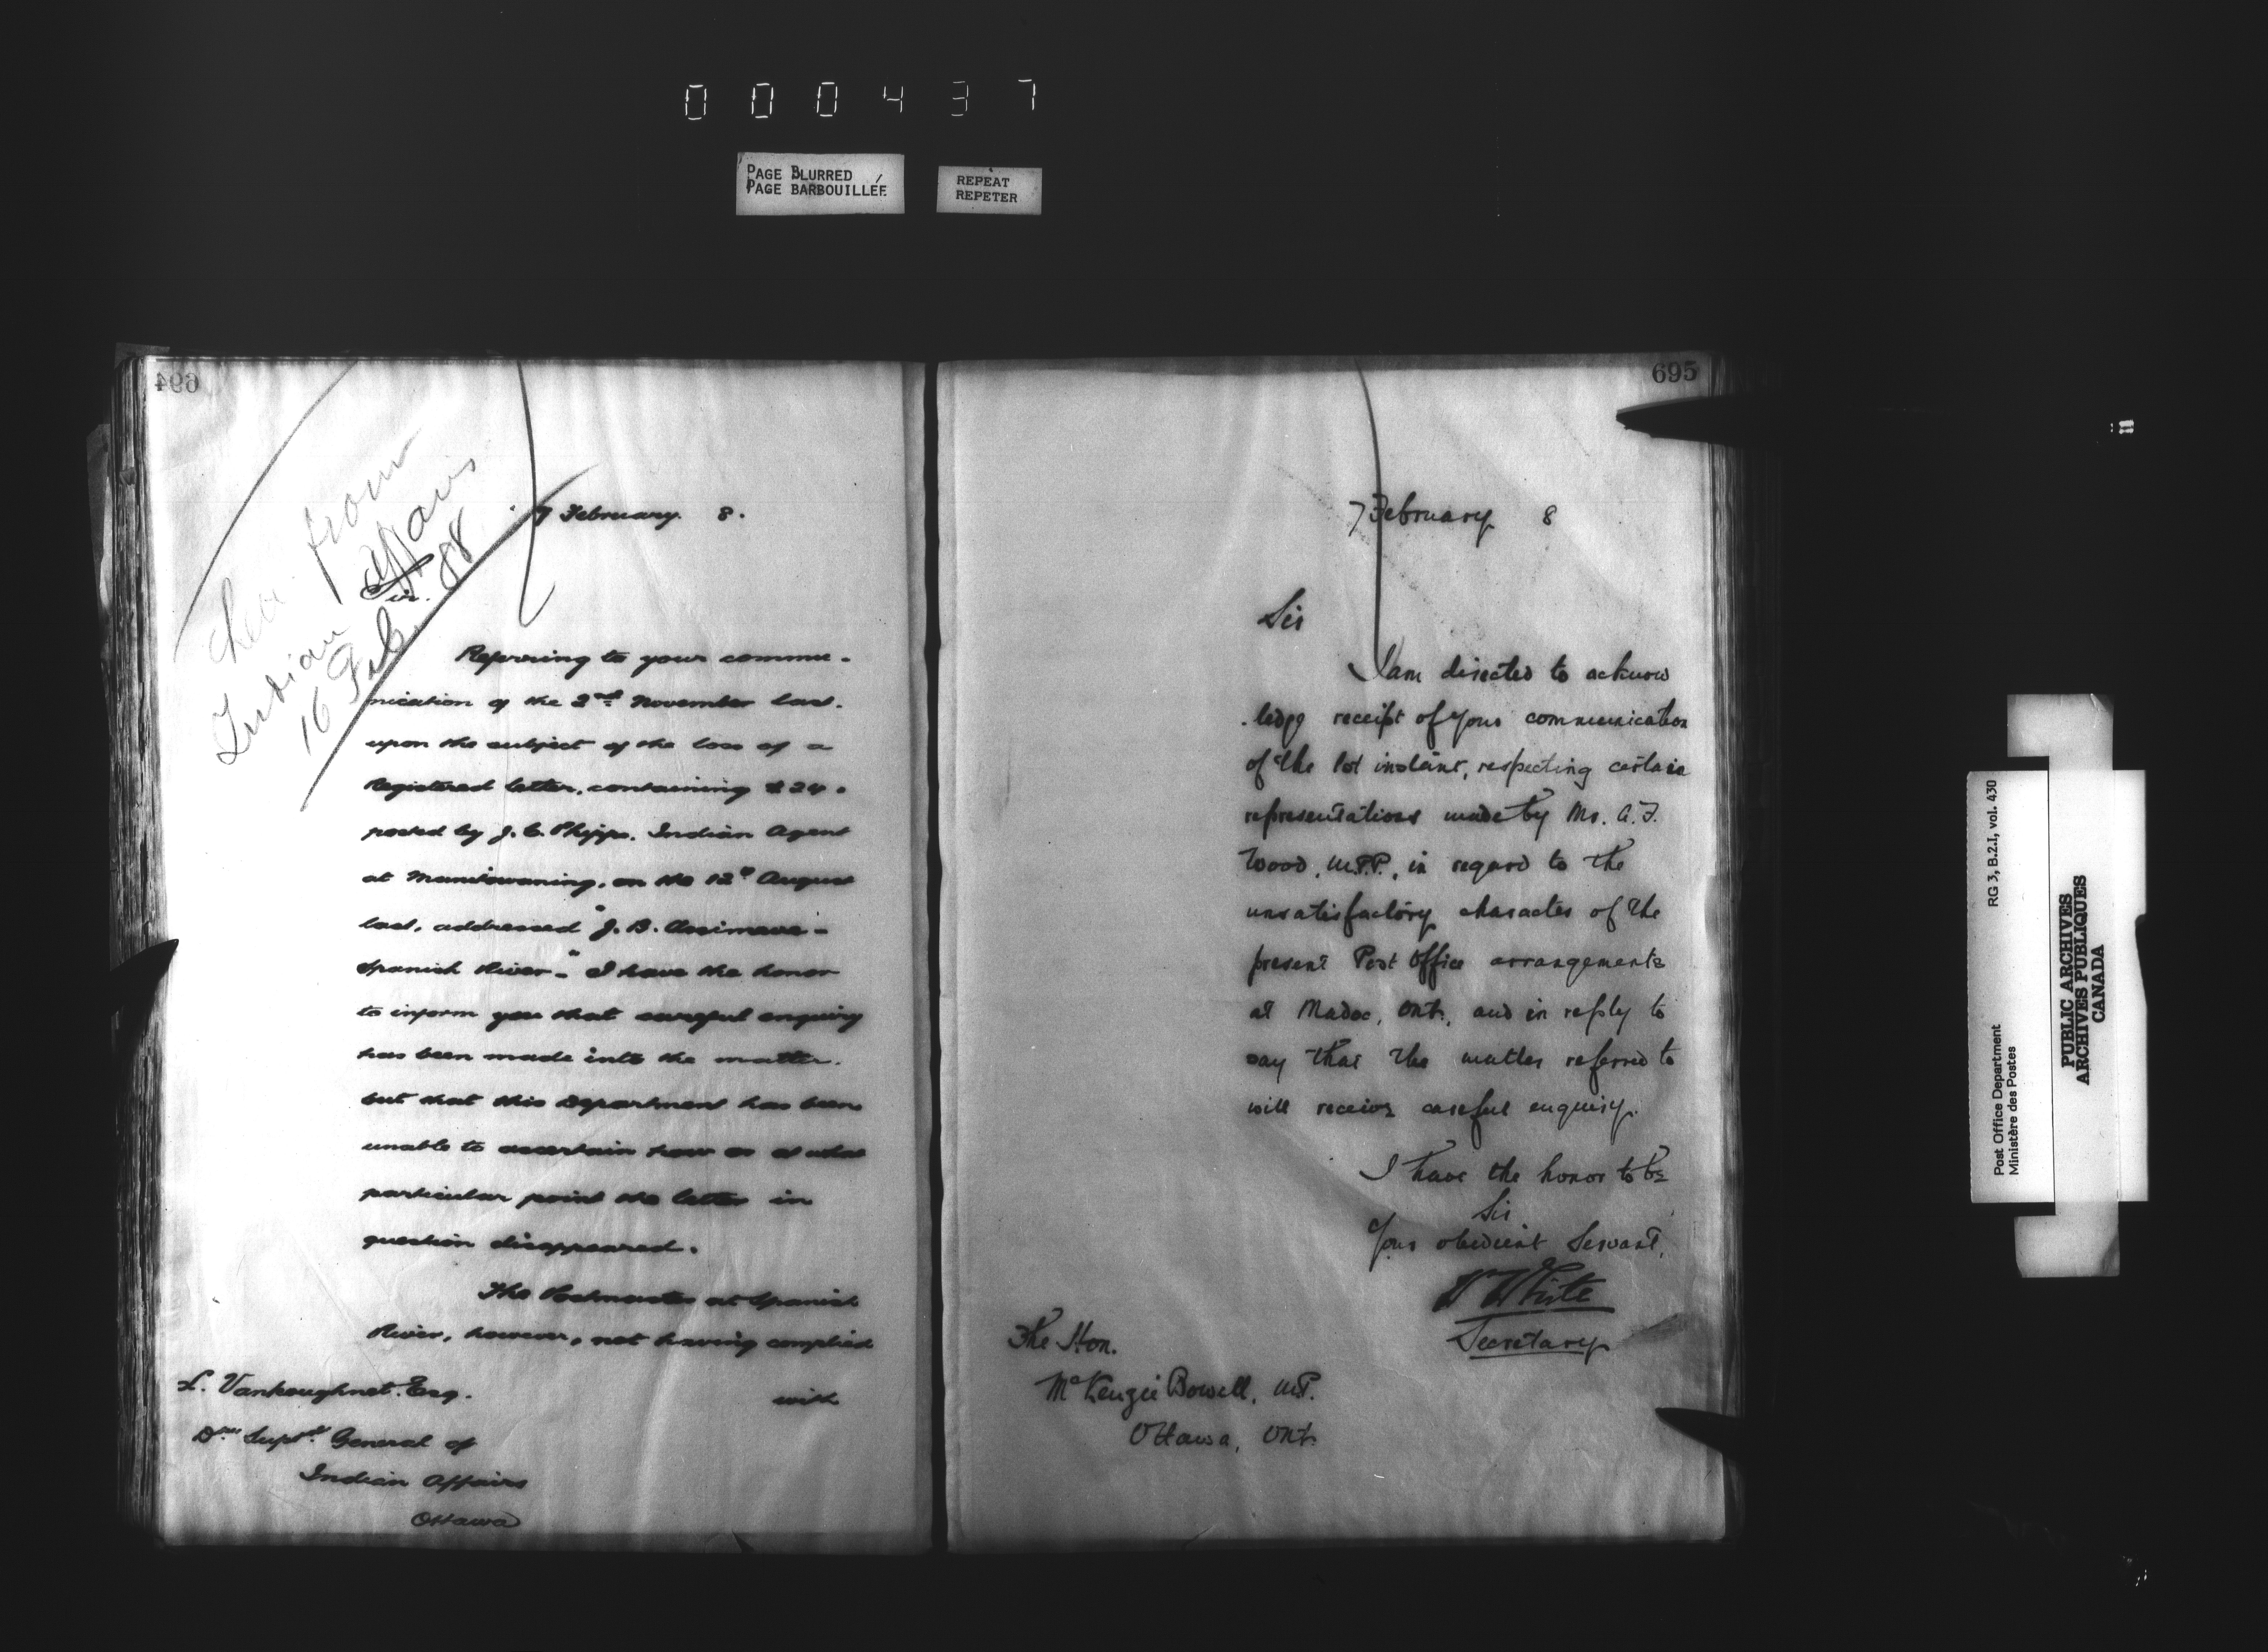 000437
PAGE BLURRED
PAGE BARBOUILLÉE
REPEAT
REPETER
694
7 February. 8.
from
Indian Affairs
16 Feb. 88
Sir.
Referring to your commu-
nication of the 2nd November last.
upon the subject of the loss of a
Registered letter, containing $24.
posted by J. C. Phipps. Indian Agent
at Manitowaning. on the 12th August
last, addressed "J. B.
Spanish River-" I have the honor
to inform you that careful enquiry
has been made into the matter.
but that this Department has been
unable to ascertain how or at what
particular point the letter in
question disappeared.
The Postmaster at Spanish
River, however, not having complied
with
L. Vankoughnet. Esq.
Supt. General of
Indian Affairs
Ottawa
695
7 February 8
Sir
I am directed to acknow
.ledge receipt of your communication
of the 1st instant, respecting certain
representations made by Mr. A. F.
Wood, M.P.P., in regard to the
unsatisfactory character of the
present Post Office arrangements
at Madoc, Ont., and in reply to
say that the matter referred to
will receive careful enquiry.
I have the honor to be
Sir
Your obedient Servant,
W White
Secretary
The Hon.
McKenzie Bowell, M.P.
Ottawa, Ont.
Post Office Department RG 3, B.2.I, vol. 430
Ministère des Postes
PUBLIC ARCHIVES
ARCHIVES PUBLIQUES
CANADA